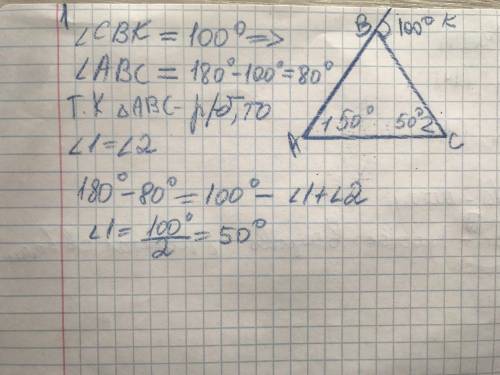 1
∠CBK = 100° =>
∠ABC = 180°-100°=80°
Т.К △ABC- р/б, то
∠1=∠2
180°-80°=100° - ∠1+∠2
∠1= 100°/2 = 50°
B 100° K
1 50° 50° 2
A C